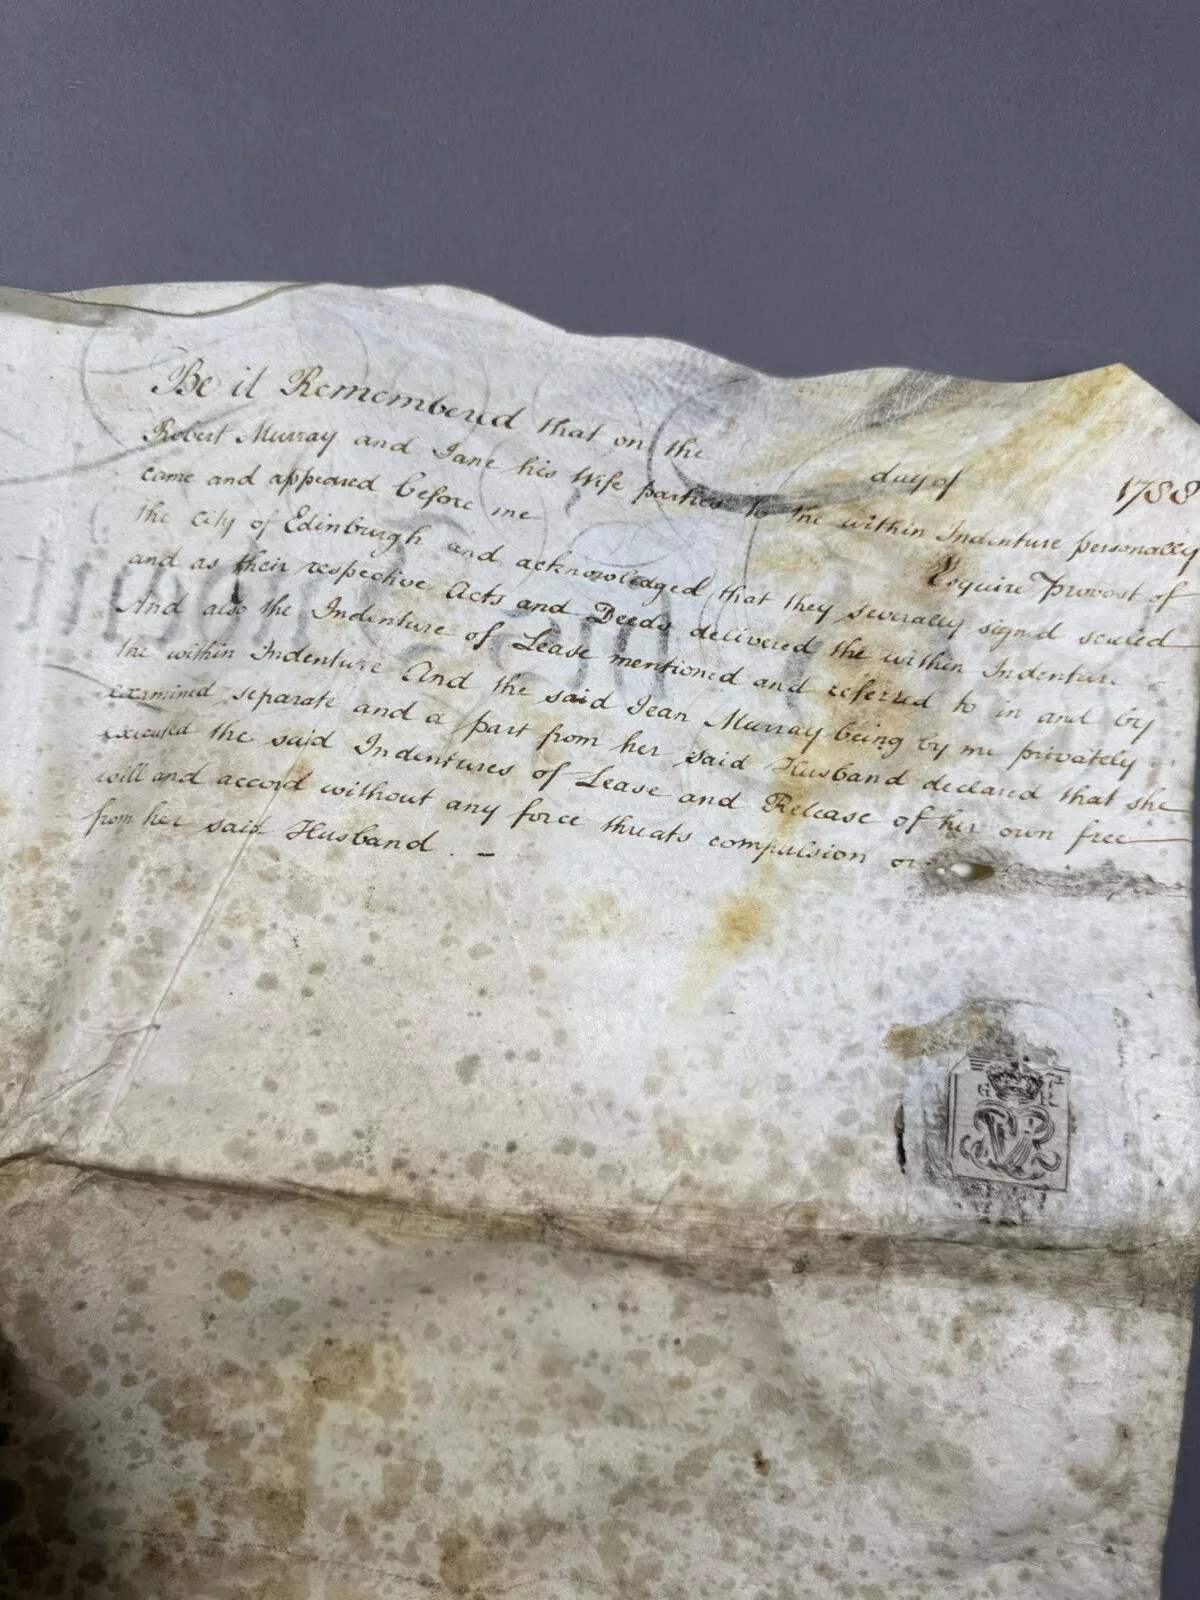 Be it Remembered that on the day of 1788
Robert Murray and Jane his Wife parties to the within Indenture personally
came and appeared before me Esquire Provost of
the City of Edinburgh and acknowledged that they severally signed sealed
and as their respective Acts and Deeds delivered the within Indenture
And also the Indenture of Lease mentioned and referred to in and by
the within Indenture And the said Jean Murray being by me privately
examined separate and a part from her said Husband declared that she
executed the said Indentures of Lease and Release of her own free
will and accord without any force threats compulsion or
from her said Husband. –
G R
GR